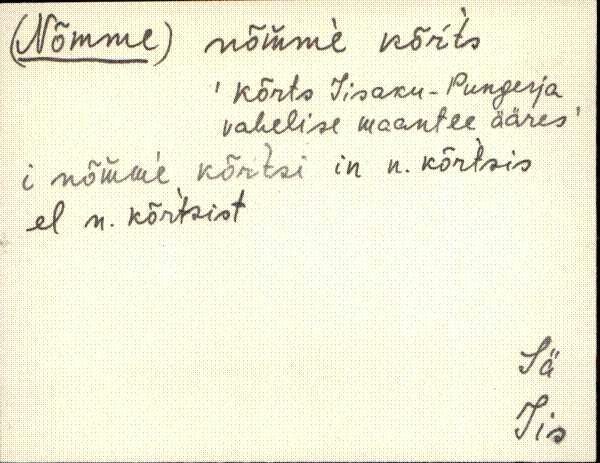 (Nõmme) nõm̆mè kõrt̀s
' kõrts Iisaku-Pungerja
vahelise maantee ääres'
i nõm̆mè kõrt̀si in n. kõrt̀sis
el n. kõrt̀sist
Sä
Iis